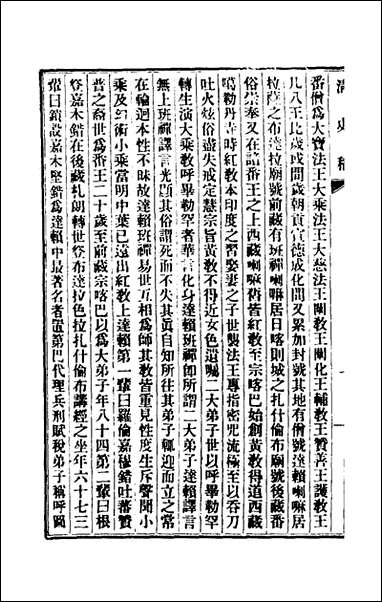 清史稿
番僧爲大寶法王大乘法王大慈法王闡教王闡化王輔教王贊善王護教王
凡八王比歲或間歲朝貢宣德成化間又累加封號其地有僧號達賴喇嘛居
拉薩之布達拉廟號前藏有班禪喇嘛居日喀則城之札什倫布廟號後藏番
俗崇奉又在諸番王之上西藏喇嘛舊皆紅教至宗喀巴始創黃教得道西藏
噶勒丹寺時紅教本印度之習娶妻之子世襲法王專指密咒流極至以吞刀
吐火炫俗盡失戒定慧宗旨黃教不得近女色遺囑二大弟子世以呼畢勒罕
轉生演大乘教呼畢勒罕者華言化身達賴班禪卽所謂二大弟子達賴譯言
無上班禪譯言光顯其俗謂死而不失其眞自知所往其弟子輒迎而立之常
在輪迴本性不昧故達賴班禪易世互相爲師其教皆重見性度生斥聲聞小
乘及幻術小乘當明中葉已遠出紅教上達賴第一輩曰羅倫嘉穆錯吐蕃贊
普之裔世爲番王二十歲至前藏宗喀巴以爲大弟子年八十四第二輩曰根
登嘉木錯在後藏札朗轉世登布達拉色拉札什倫布講經之坐年六十七三
輩曰鎖設嘉木堅錯爲達賴中最著名者置第巴代理兵刑賦稅弟子稱呼圖